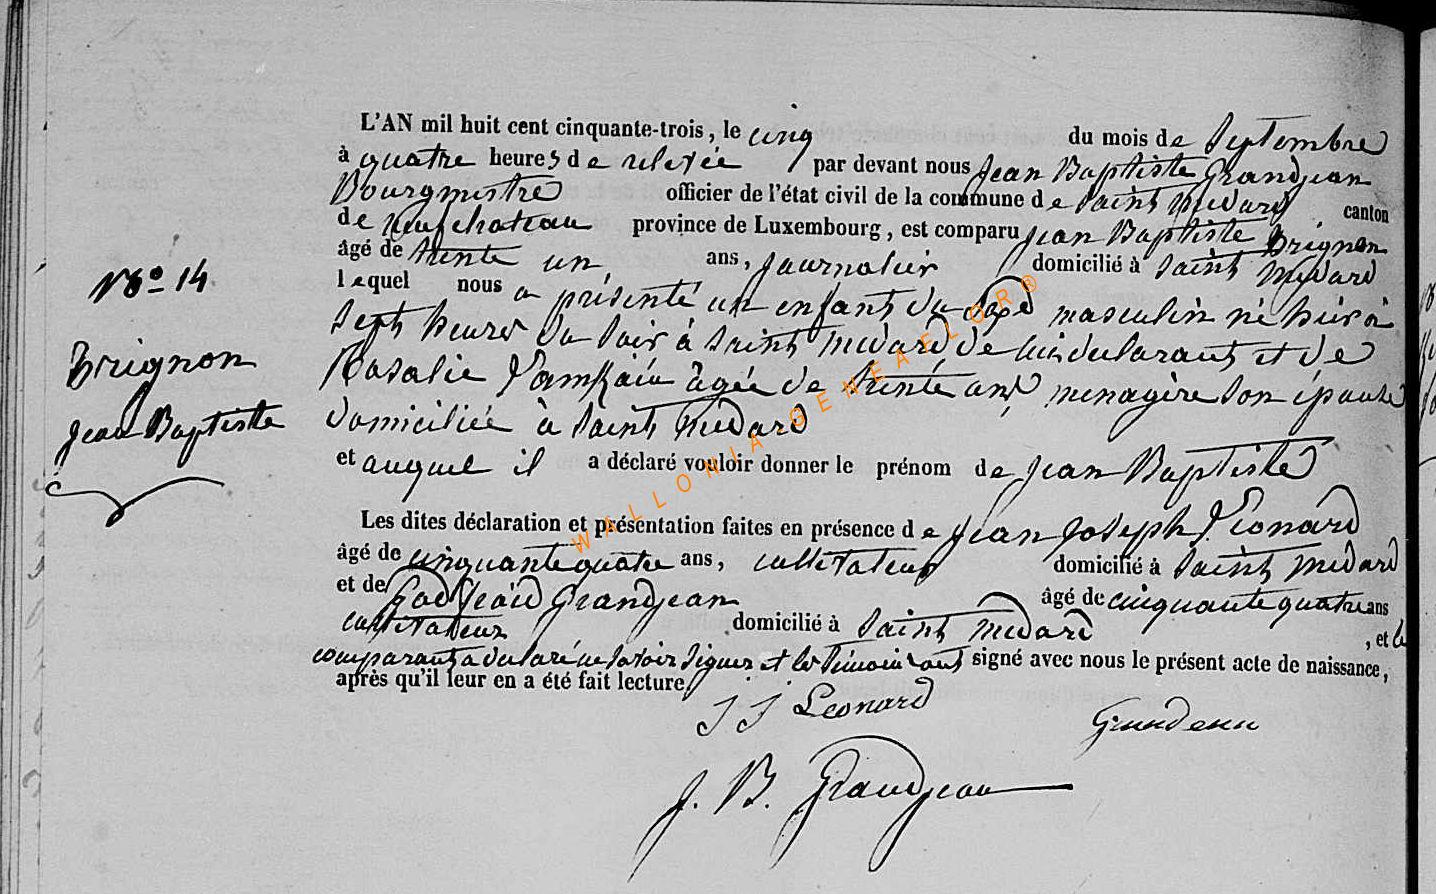 L'AN mil huit cent cinquante-trois, le cinq du mois de Septembre
à quatre heures de relevée par devant nous Jean Baptiste Grandjean
Bourgmestre officier de l'état civil de la commune de Saint Médard canton
de neufchateau province de Luxembourg, est comparu Jean Baptiste Brignon
âgé de trente un ans, Journalier domicilié à Saint Médard
lequel nous a présenté un enfant du sexe masculin né hier à
Sept heures du Soir à Saint Médard de lui déclarant et de
Rosalie âgée de trente ans, menagère Son épouse
domiciliée à Saint Médard
et auquel il a déclaré vouloir donner le prénom de Jean Baptiste
Les dites déclaration et présentation faites en présence de Jean Joseph Léonard
âgé de cinquante quatre ans, cultivateur domicilié à Saint Médard
et de Grandjean âgé de cinquante quatre ans
cultivateur domicilié à Saint Médard, et le
comparant a déclaré ne Savoir Signer et les témoins ont signé avec nous le présent acte de naissance,
après qu'il leur en a été fait lecture
J J Leonard
Grandjean
J. B. Grandjean
No 14
Brignon
Jean Baptiste
WALLONIA-GENEAELOR®